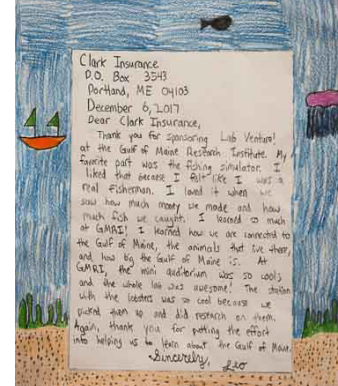 Clark Insurance
P.O. Box 3543
Portland, ME 04103
December 6, 2017
Dear Clark Insurance,
Thank you for sponsoring Lab Venture!
at the Gulf of Maine Research Institute. My
favorite part was the fishing simulator. I
liked that because I felt like I was a
real fisherman. I loved it when we
saw how much money we made and how
much fish we caught. I learned so much
at GMRI! I learned how we are connected to
the Gulf of Maine, the animals that live there,
and how big the Gulf of Maine is. At
GMRI, the mini auditorium was so cool,
and the whole lab was awesome! The station
with the lobsters was so cool because we
picked them up and did research on them.
Again, thank you for putting the effort
into helping us to learn about the Gulf of Maine.
Sincerely,
Leo